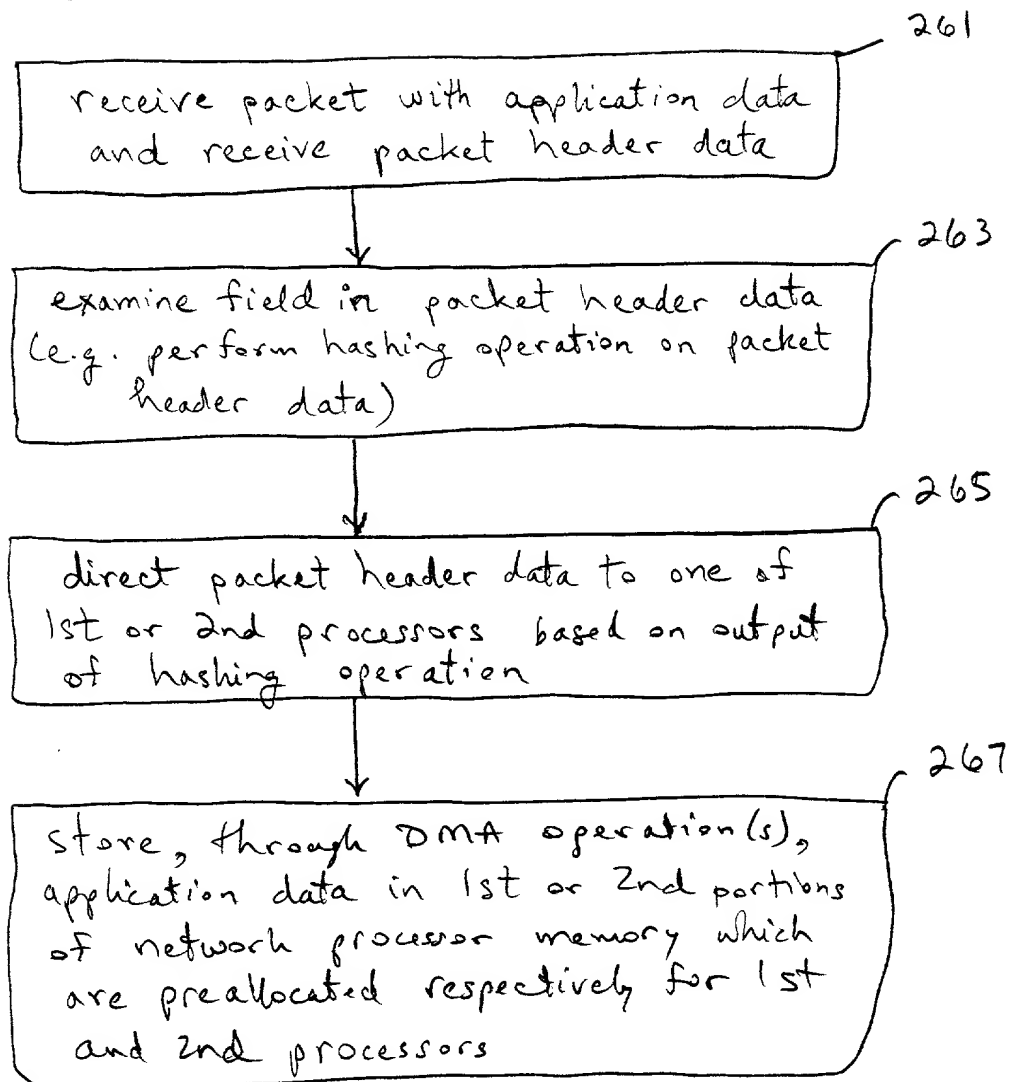 261
receive packet with application data
and receive packet header data
263
examine field in packet header data
(e.g. perform hashing operation on packet
header data)
265
direct packet header data to one of
1st or 2nd processors based on output
of hashing operation
267
store, through DMA operation(s),
application data in 1st or 2nd portions
of network processor memory which
are preallocated respectively for 1st
and 2nd processors